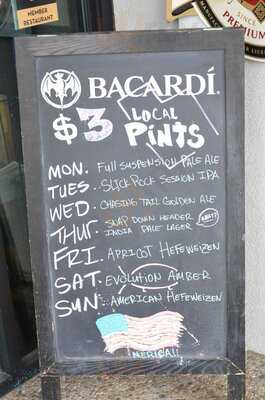 MEMBER
RESTAURANT
SINCE
PREMIUM
BACARDÍ®
$3 LOCAL
PINTS
MON. FULL SUSPENSION PALE ALE
TUES. SLICK ROCK SESSION IPA
WED. CHASING TAIL GOLDEN ALE
THUR. SNAP DOWN HEADER
INDIA PALE LAGER
FRI. APRICOT HEFEWEIZEN
SAT. EVOLUTION AMBER
SUN. AMERICAN HEFEWEIZEN
'MERICA!!